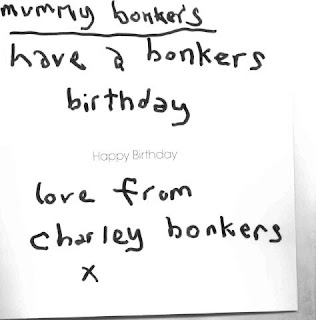 mummy bonkers
have a bonkers
birthday
Happy Birthday
love from
charley bonkers
x